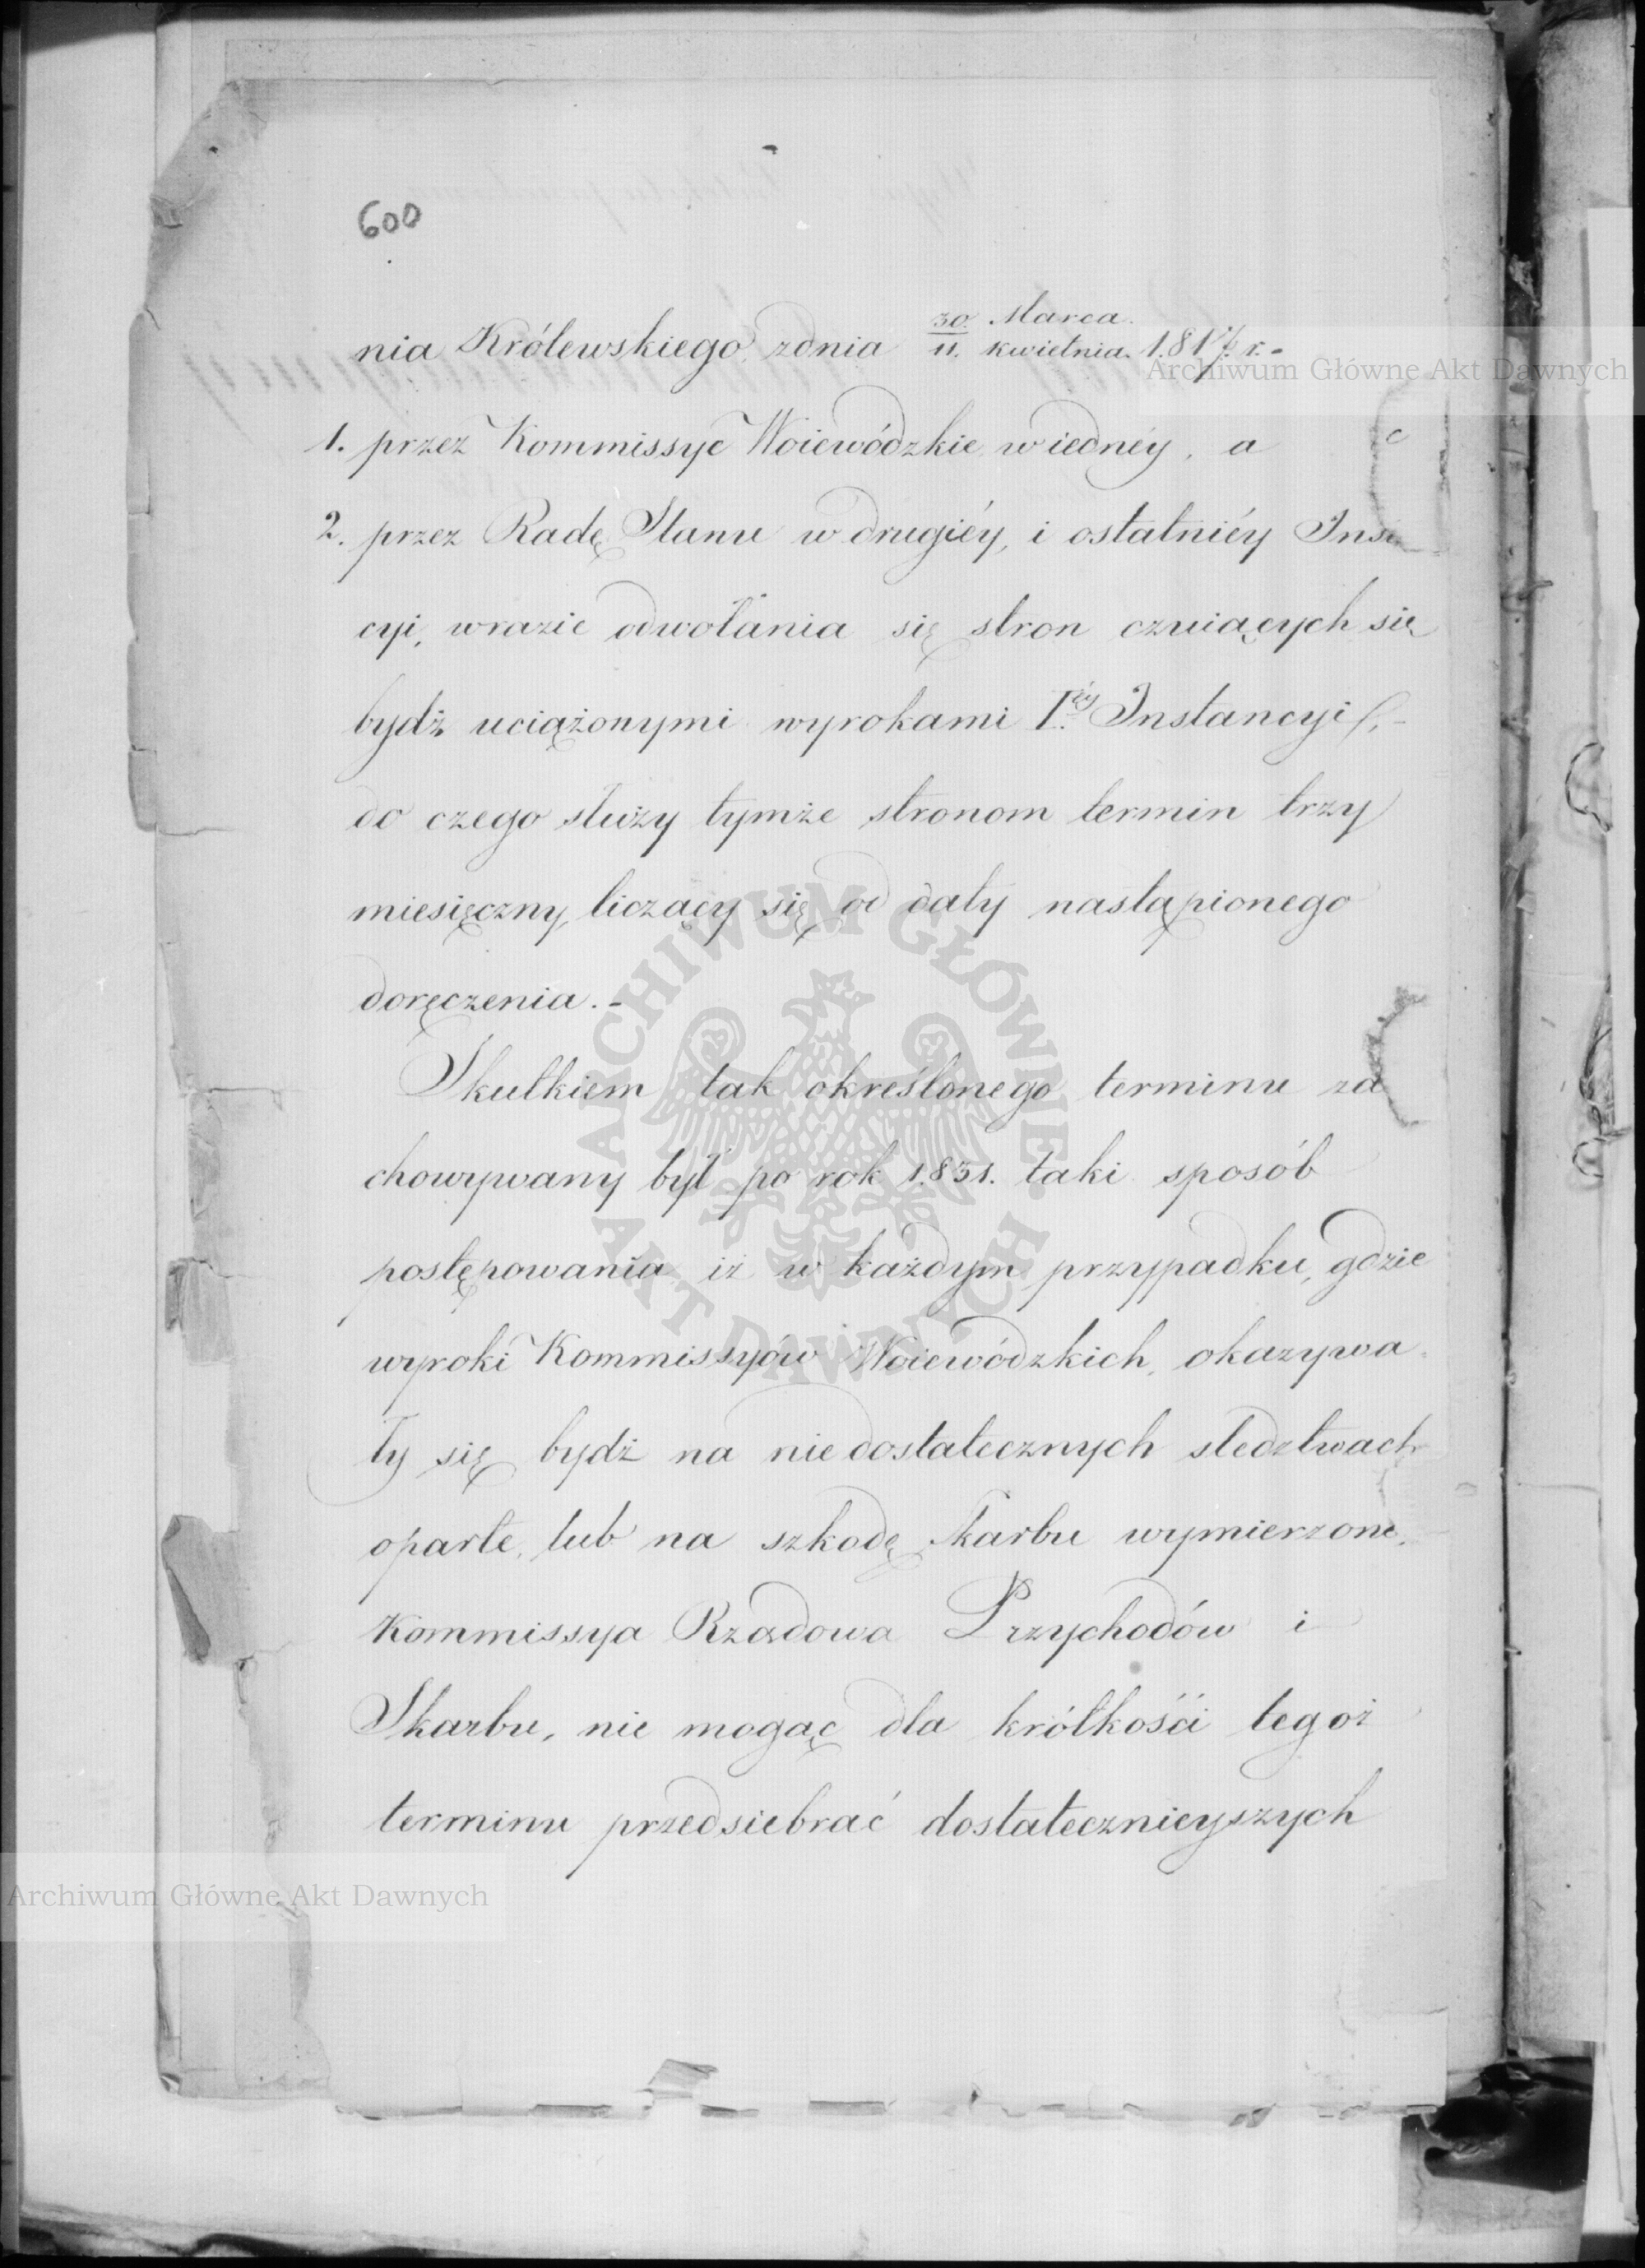 600
nia Królewskiego zdnia 30. Marca. / 11. kwietnia. 1.817. r.-
1. przez Kommissye Woiewódzkie w iednéy, a
2. przez Radę Stanu w drugiéy, i ostatniéy Inst
cyi, wrazie odwołania się stron czuiących się
bydź uciążonymi wyrokami I.éy Instancyi,
do czego służy tymże stronom termin trzy
miesięczny, liczący się od daty nastąpionego
doręczenia.-
Skutkiem tak określonego terminu za
chowywany był po rok 1.831. taki sposób
postępowania iż w każdym przypadku, gdzie
wyroki Kommissyów Woiewódzkich, okazywa
ły się bydź na niedostatecznych sledztwach
oparte, lub na szkodę Skarbu wymierzone,
Kommissya Rządowa Przychodów i
Skarbu, nie mogąc dla krótkości tegoż
terminu przedsiebrać dostatecznieyszych
Archiwum Główne Akt Dawnych
ARCHIWUM GŁÓWNE AKT DAWNYCH
Archiwum Główne Akt Dawnych